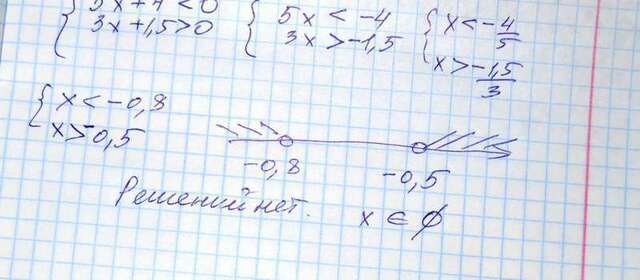 { 5x+4<0
3x+1,5>0
{ 5x < -4
3x > -1,5
{ x < -4/5
x > -1,5/3
{ x < -0,8
x > -0,5
-0,8 -0,5
Решений нет. x ∈ ∅